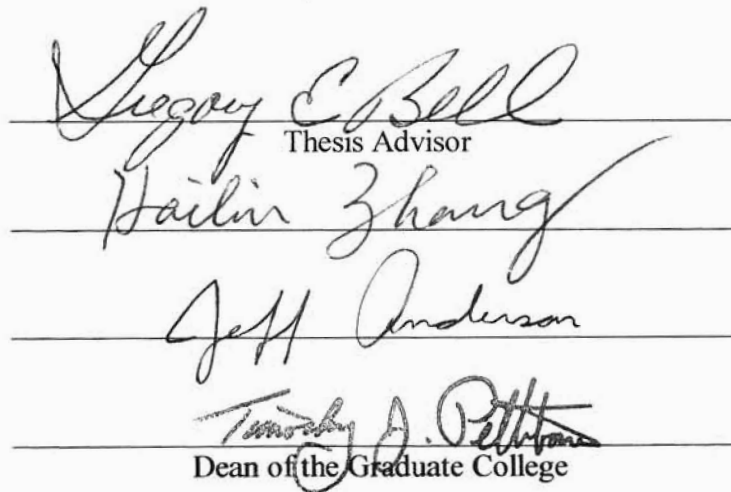 Gregory E Bell
Thesis Advisor
Hailin Zhang
Jeff Anderson
Timothy J. Pettibone
Dean of the Graduate College